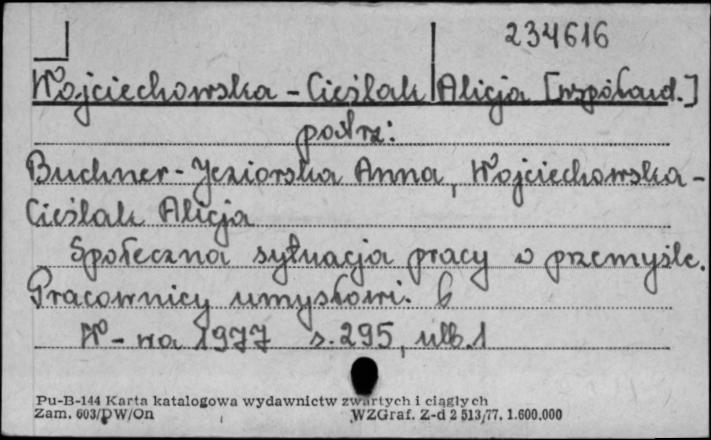 234616
Wojciechowska - Cieślak Alicja [współaut.]
patrz:
Buchner - Jeziorska Anna, Wojciechowska -
Cieślak Alicja
Społeczna sytuacja pracy w przemyśle.
Pracownicy umysłowi.
W-wa 1977 s. 295, nlb. 1
Pu-B-144 Karta katalogowa wydawnictw zwartych i ciągłych
Zam. 603/DW/On WZGraf. Z-d 2 513/77. 1.600.000